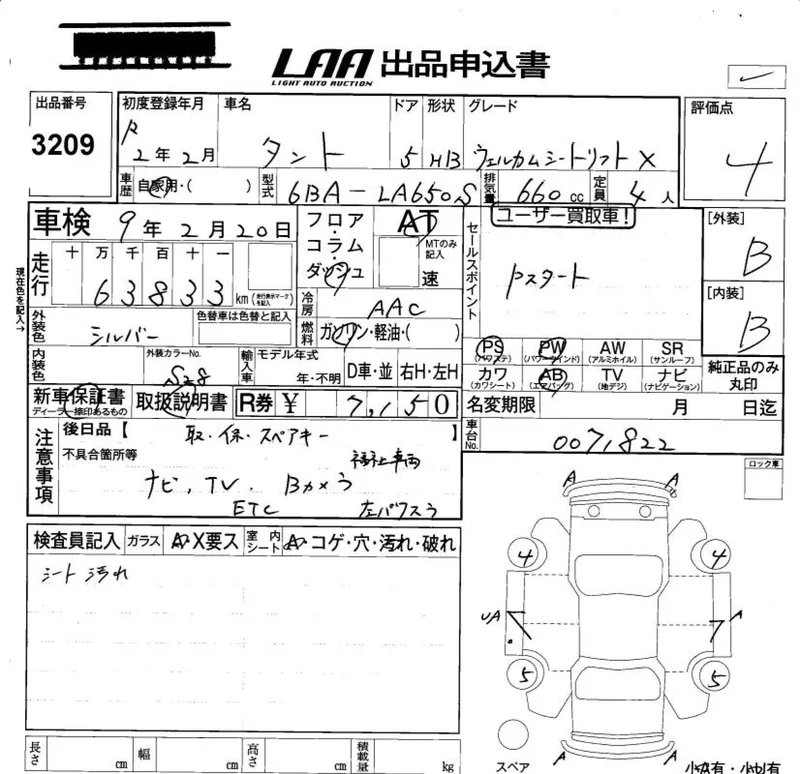 LAA 出品申込書
LIGHT AUTO AUCTION
出品番号 初度登録年月 車名 ドア 形状 グレード 評価点
3209 R 2年2月 タント 5 HB ウェルカムシートリフト X 4
車歴 自家用・( ) 型式 6BA-LA650S 排気量 660cc 定員 4人
車検 9年2月20日 フロア・コラム・ダッシュ AT MTのみ記入 速
ユーザー買取車!
セールスポイント Pスタート
[外装] B
[内装] B
現在色を記入→
走行 十万千百十一
63833 km (走行表示マークを記入)
冷房 AAC
外装色 シルバー 色替車は色替と記入
燃料 ガソリン・軽油・( )
PS (パワステ) PW (パワーウインド) AW (アルミホイル) SR (サンルーフ)
カワ (カワシート) AB (エアバッグ) TV (地デジ) ナビ (ナビゲーション)
純正品のみ丸印
内装色 外装カラーNo. S28 輸入車 モデル年式 年・不明 D車・並 右H・左H
新車保証書 ディーラー捺印あるもの 取扱説明書 R券 ¥ 7,150 名変期限 月 日迄
車台No. 0071822
注意事項 後日品【 取・保・スペアキー 】
不具合箇所等 福祉車両
ナビ, TV, Bカメラ
ETC 左パワスラ
ロック車
検査員記入 ガラス A・X要ス 室内シート A・コゲ・穴・汚れ・破れ
シート汚れ
A A
4 4
UA A
5 5
A A
スペア
長さ cm 幅 cm 高さ cm 積載量 kg